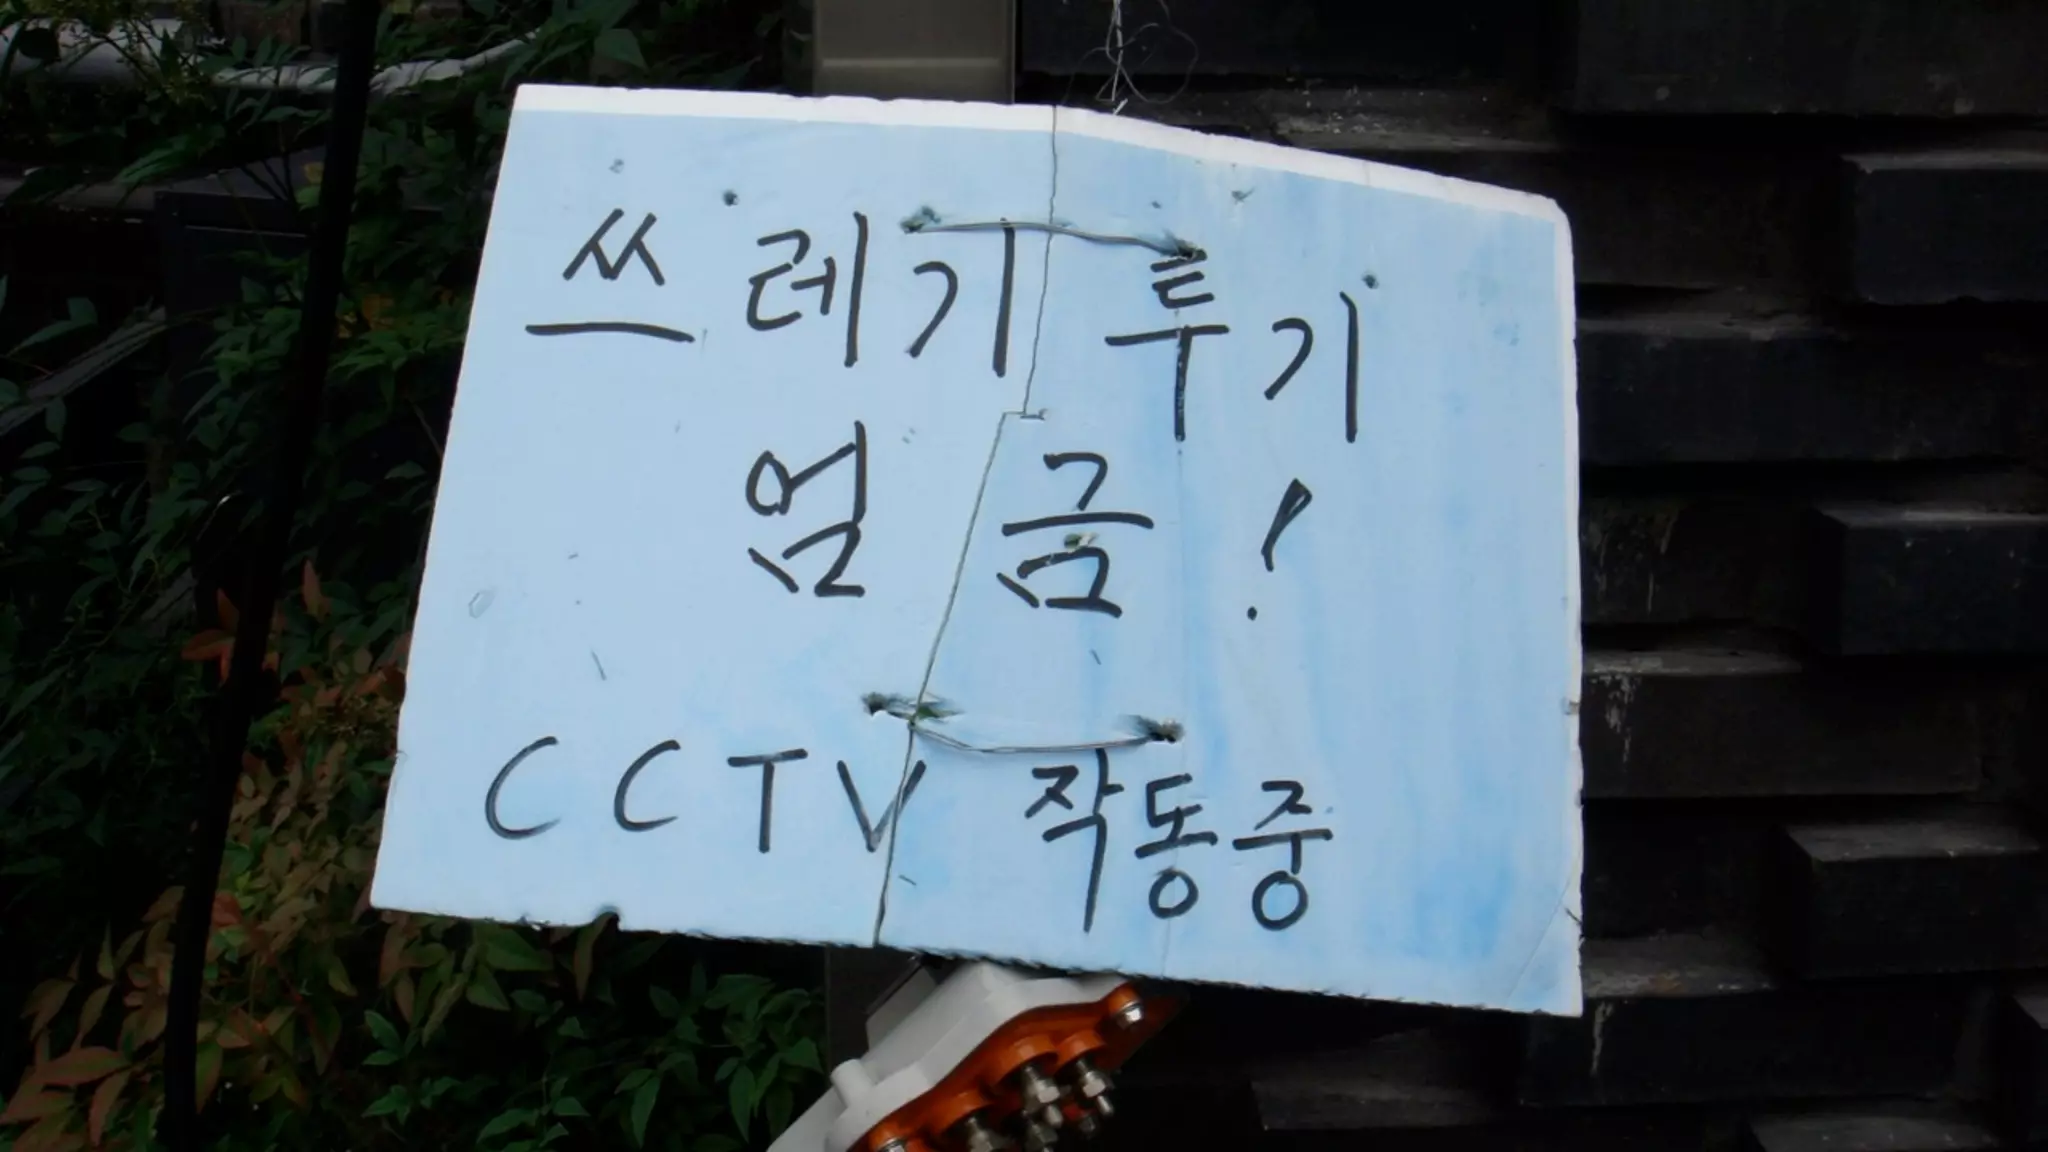 쓰레기 투기
엄금!
CCTV 작동중